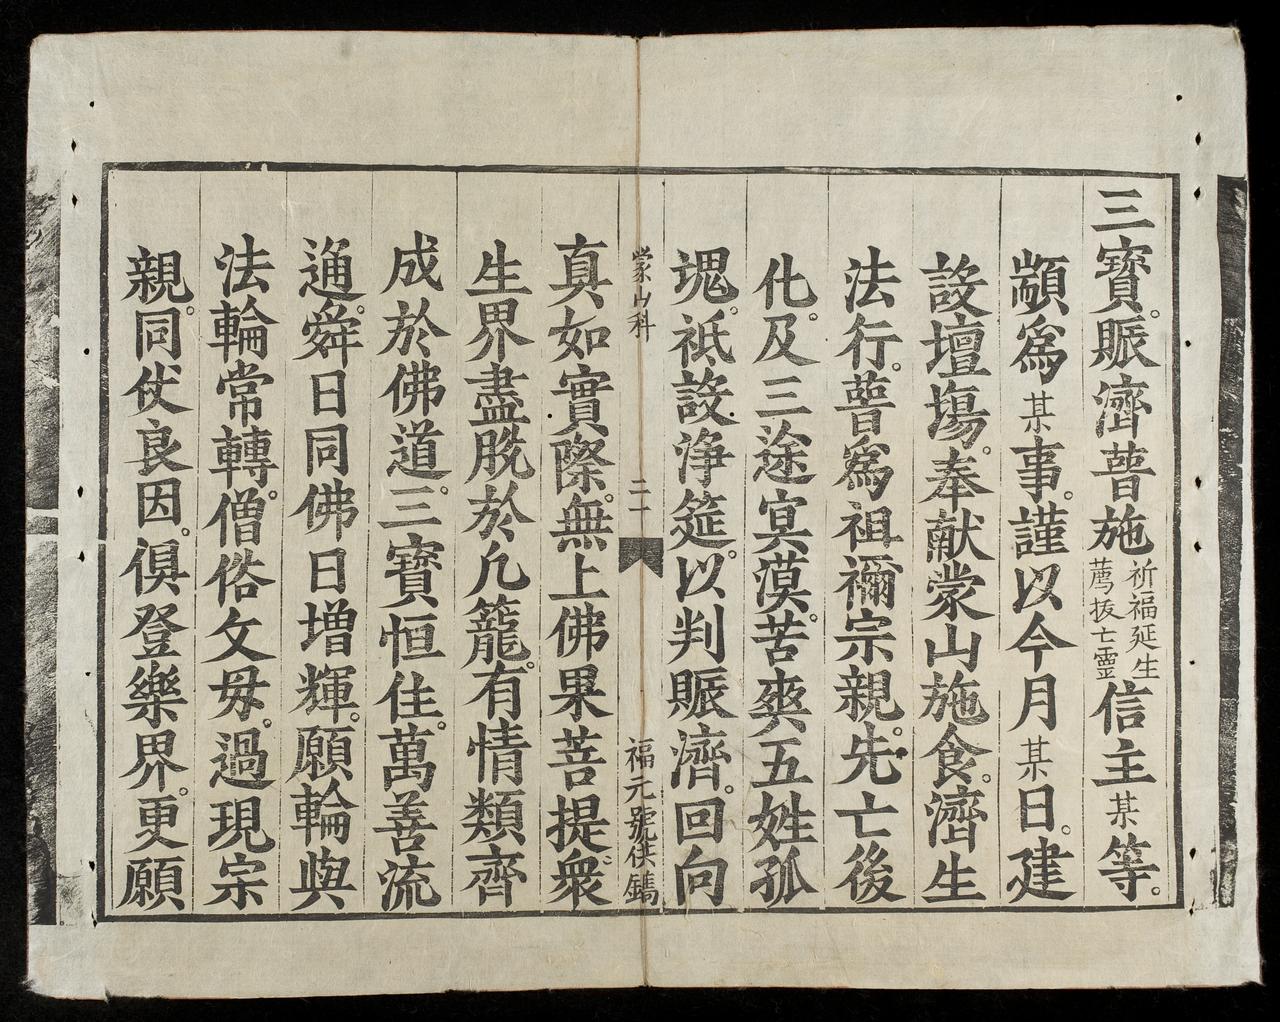 三寳。賑濟普施祈福延生薦拔亡靈信主某等。
顓爲某事。謹以今月某日。建
設壇塲。奉献蒙山施食。濟生
法行。普爲祖禰宗親。先亡後
化。及三途冥漠。苦爽五姓孤
魂。祇設浄筵。以判賑濟。回向
蒙山科
二一
福元號供鐫
真如實際。無上佛果菩提。衆
生界盡脱於凢籠。有情類齊
成於佛道。三寳恒住。萬善流
通。舜日同佛日增輝。願輪與
法輪常轉。僧俗父毋。過現宗
親。同仗良因。俱登樂界。更願